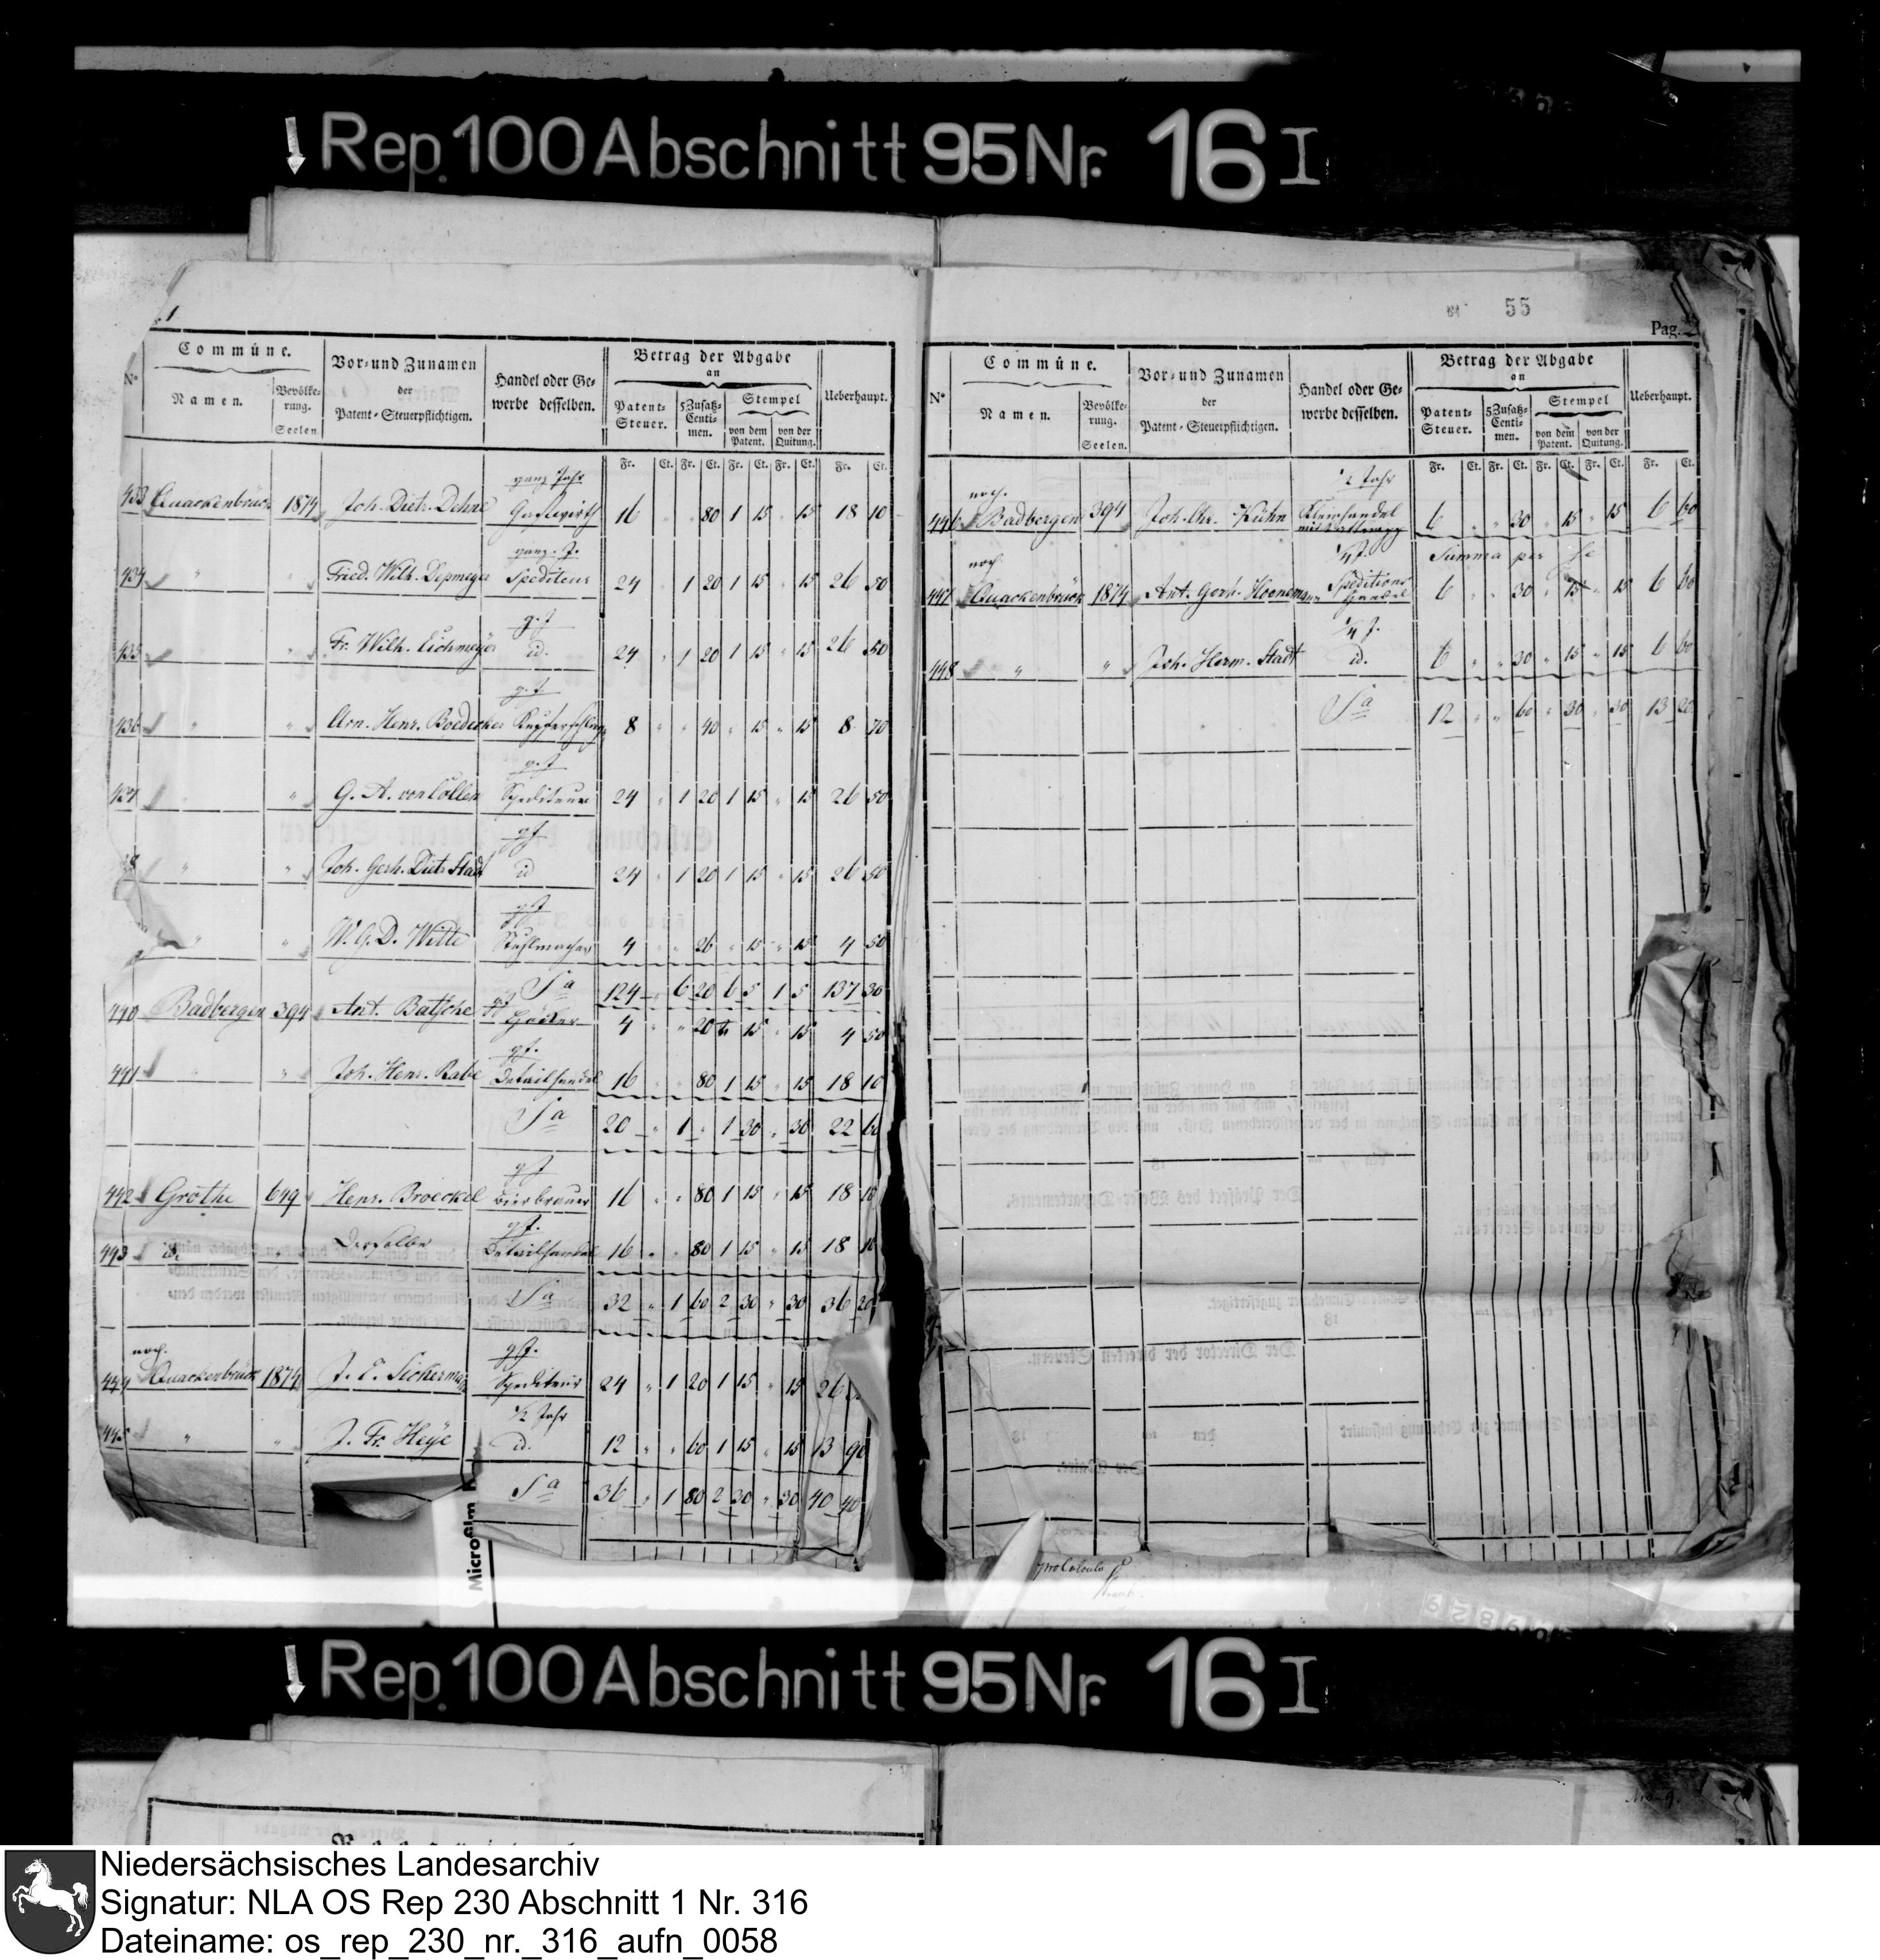 Rep. 100 Abschnitt 95 Nr. 16 I
1
N° Commúne. Namen. Bevölkerung. Seelen. Vor- und Zunamen der Patent-Steuerpflichtigen. Handel oder Gewerbe desselben. Betrag der Abgabe an Patent-Steuer. 5 Zusatz-Centimen. Stempel von dem Patent. von der Quitung. Ueberhaupt.
Fr. Ct. Fr. Ct. Fr. Ct. Fr. Ct. Fr. Ct.
ganz Jahr
433 Quackenbrück 1874 Joh. Dietr. Dehne Gastwirth 16 " " 80 1 15 " 15 18 10
ganz. J.
434 " " Fried. Wilh. Depmeyer Spediteur 24 " 1 20 1 15 " 15 26 50
g. J
435 " Fr. Wilh. Eichmeyer id. 24 " 1 20 1 15 " 15 26 50
g. J
436 " " Arn. Henr. Boedecker 8 " " 40 " 15 " 15 8 70
g. J
437 " G. A. von Cöllen Spediteur 24 " 1 20 1 15 " 15 26 50
g J
38 " " Joh. Gerh. Dietr. Stadt id 24 " 1 20 1 15 " 15 26 50
g J
" " W. G. D. Witte Stuhlmacher 4 " " 20 " 15 " 15 4 50
Sa 124 " 6 20 6 5 1 5 137 30
440 Badbergen 394 Ant. Batsche gJ Höcker 4 " " 20 15 " 15 4 50
gJ.
441 " " Joh. Henr. Rabe Detailhandel 16 " " 80 1 15 " 15 18 10
Sa 20 " 1 " 1 30 " 30 22 60
gJ
442 Grothe 649 Henr. Broeckel Bierbrauer 16 " " 80 1 15 " 15 18 10
gJ.
443 id. " Derselbe Detailhandel 16 " " 80 1 15 " 15 18 10
Sa 32 " 1 60 2 30 " 30 36 20
noch. gJ.
444 Quackenbrück 1874 Spediteur 24 " 1 20 1 15 " 15 26
½ Jahr
445 " " J. Fr. Heye id. 12 " " 60 1 15 " 15 13 90
Sa 36 " 1 80 2 30 " 30 40 40
55
Pag.
N° Commúne. Namen. Bevölkerung. Seelen. Vor- und Zunamen der Patent-Steuerpflichtigen. Handel oder Gewerbe desselben. Betrag der Abgabe an Patent-Steuer. 5 Zusatz-Centimen. Stempel von dem Patent. von der Quitung. Ueberhaupt.
Fr. Ct. Fr. Ct. Fr. Ct. Fr. Ct. Fr. Ct.
noch. ½ Jahr
446 Badbergen 394 Joh. Chr. Kühn Kleinhandel 6 " " 30 " 15 " 15 6 60
noch ¼ J. Summa per se
447 Quackenbrück 1874 Ant. Gerh. Hoenemann Speditions Handel 6 " " 30 " 15 " 15 6 60
¼ J.
448 " " Joh. Herm. Stadt id. 6 " " 30 " 15 " 15 6 60
Sa 12 " " 60 " 30 " 30 13 20
pro Calculo
Rep. 100 Abschnitt 95 Nr. 16 I
Niedersächsisches Landesarchiv
Signatur: NLA OS Rep 230 Abschnitt 1 Nr. 316
Dateiname: os_rep_230_nr._316_aufn_0058